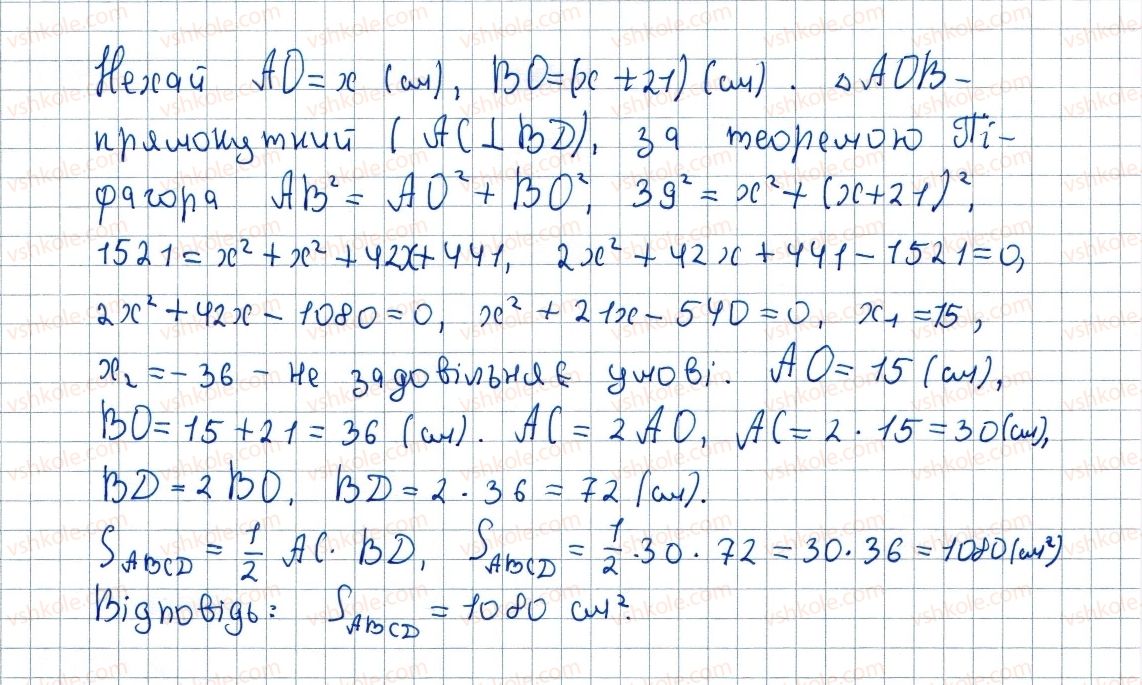 Нехай AO = x (см), BO = (x + 21) (см). △ AOB –
прямокутний (AC ⊥ BD), за теоремою Пі-
фагора AB² = AO² + BO², 39² = x² + (x+21)²,
1521 = x² + x² + 42x + 441, 2x² + 42x + 441 – 1521 = 0,
2x² + 42x – 1080 = 0, x² + 21x – 540 = 0, x₁ = 15,
x₂ = – 36 – не задовільняє умові. AO = 15 (см),
BO = 15 + 21 = 36 (см). AC = 2 AO, AC = 2 · 15 = 30 (см),
BD = 2 BO, BD = 2 · 36 = 72 (см).
S_ABCD = 1/2 AC · BD, S_ABCD = 1/2 · 30 · 72 = 30 · 36 = 1080 (см²)
Відповідь: S_ABCD = 1080 см².